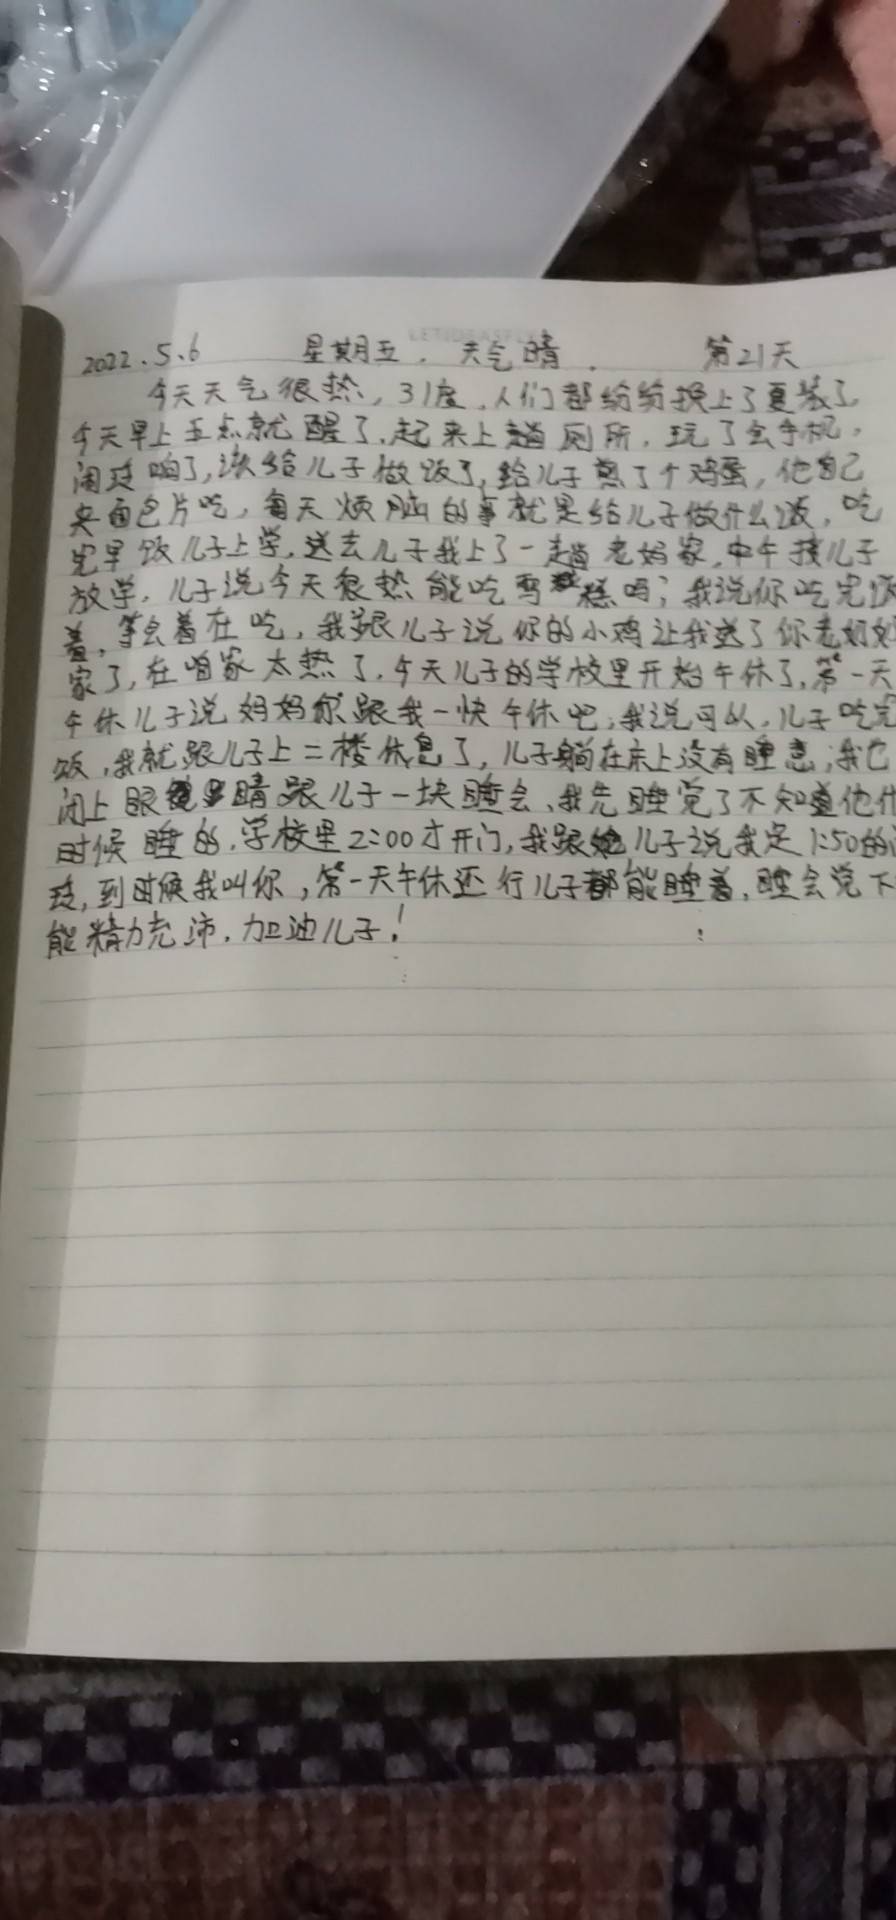 2022.5.6 星期五. 天气晴. 第21天
今天天气很热,31度,人们都纷纷换上了夏装了,
今天早上五点就醒了,起来上趟厕所,玩了会手机,
闹铃响了,该给儿子做饭了,给儿子煎了个鸡蛋,他自己
夹面包片吃,每天烦脑的事就是给儿子做什么饭,吃
完早饭儿子上学,送去儿子我上了一趟老妈家,中午接儿子
放学,儿子说今天很热能吃雪糕吗;我说你吃完饭
着,等会着在吃,我跟儿子说你的小鸡让我送了你老奶奶
家了,在咱家太热了,今天儿子的学校里开始午休了,第一天
午休儿子说妈妈你跟我一快午休吧,我说可以,儿子吃完
饭,我就跟儿子上二楼休息了,儿子躺在床上没有睡意;我也
闭上眼睛跟儿子一块睡会,我先睡觉了不知道他什
时候睡的,学校里2:00才开门,我跟儿子说我定1:50的
铃,到时候我叫你,第一天午休还行儿子都能睡着,睡会觉下
能精力充沛,加油儿子!